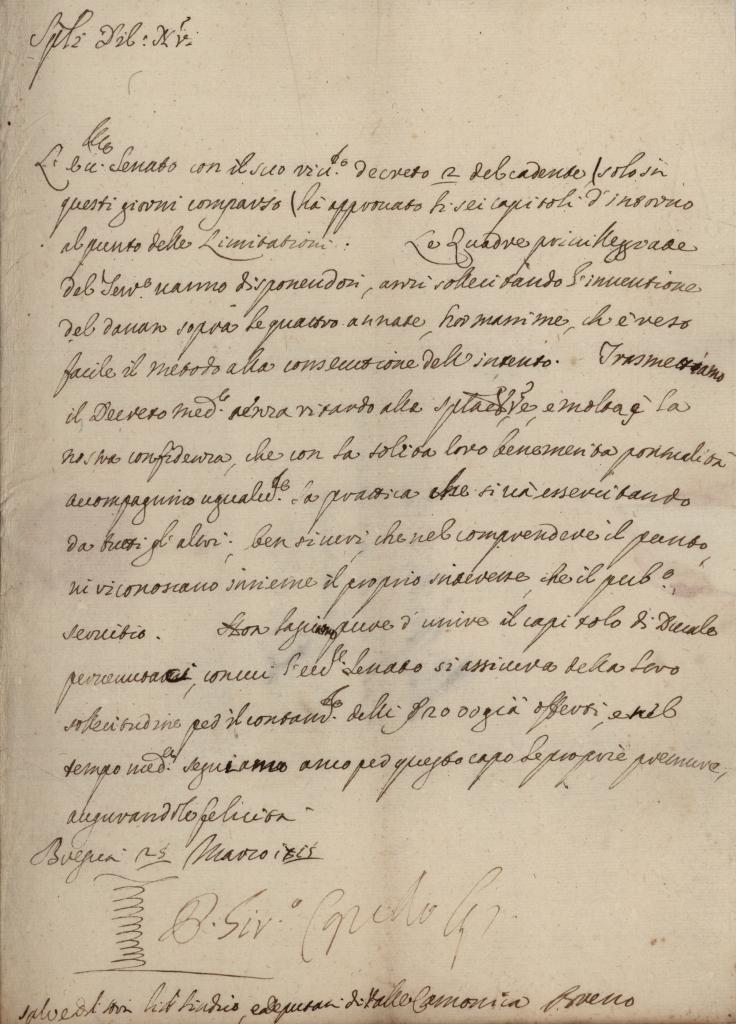 Sp:li Dil:i N.ri
L'Ecc:mo Senato con il suo riu:to decreto 2 del cadente (solo in
questi giorni comparso (ha approvato li sei capitoli d'intorno
al punto delle Limitationi: Le Quadre privilleggiate
del Terr:o vanno disponendosi, anzi sollecitando l'inventione
del danaro sopra le quattro annate, hor massime, ch'è reso
facile il metodo alla consecutione dell'intento. Trasmettiamo
il Decreto med:o senza ritardo alle e molta è la
nostra confidenza, che con la solita loro benemerita pontualità
accompagnino ugualm:te la prattica che si và essercitando
da tutti gl'altri; ben sicuri, che nel comprendere il punto,
vi riconoscano insieme il proprio interesse, che il pub:o
servitio. Non lasciamo pure d'unire il capitolo di Ducale
pervenutaci, con cui l'ecc:mo Senato si assicura della loro
sollecitudine per il contam:to delli già offerti, e nel
tempo med:o seguiamo anco per questo capo le proprie premure,
augurandole felicità
Brescia 25 Marzo
salve Sindico, e Deputati di Valle Camonica Breno